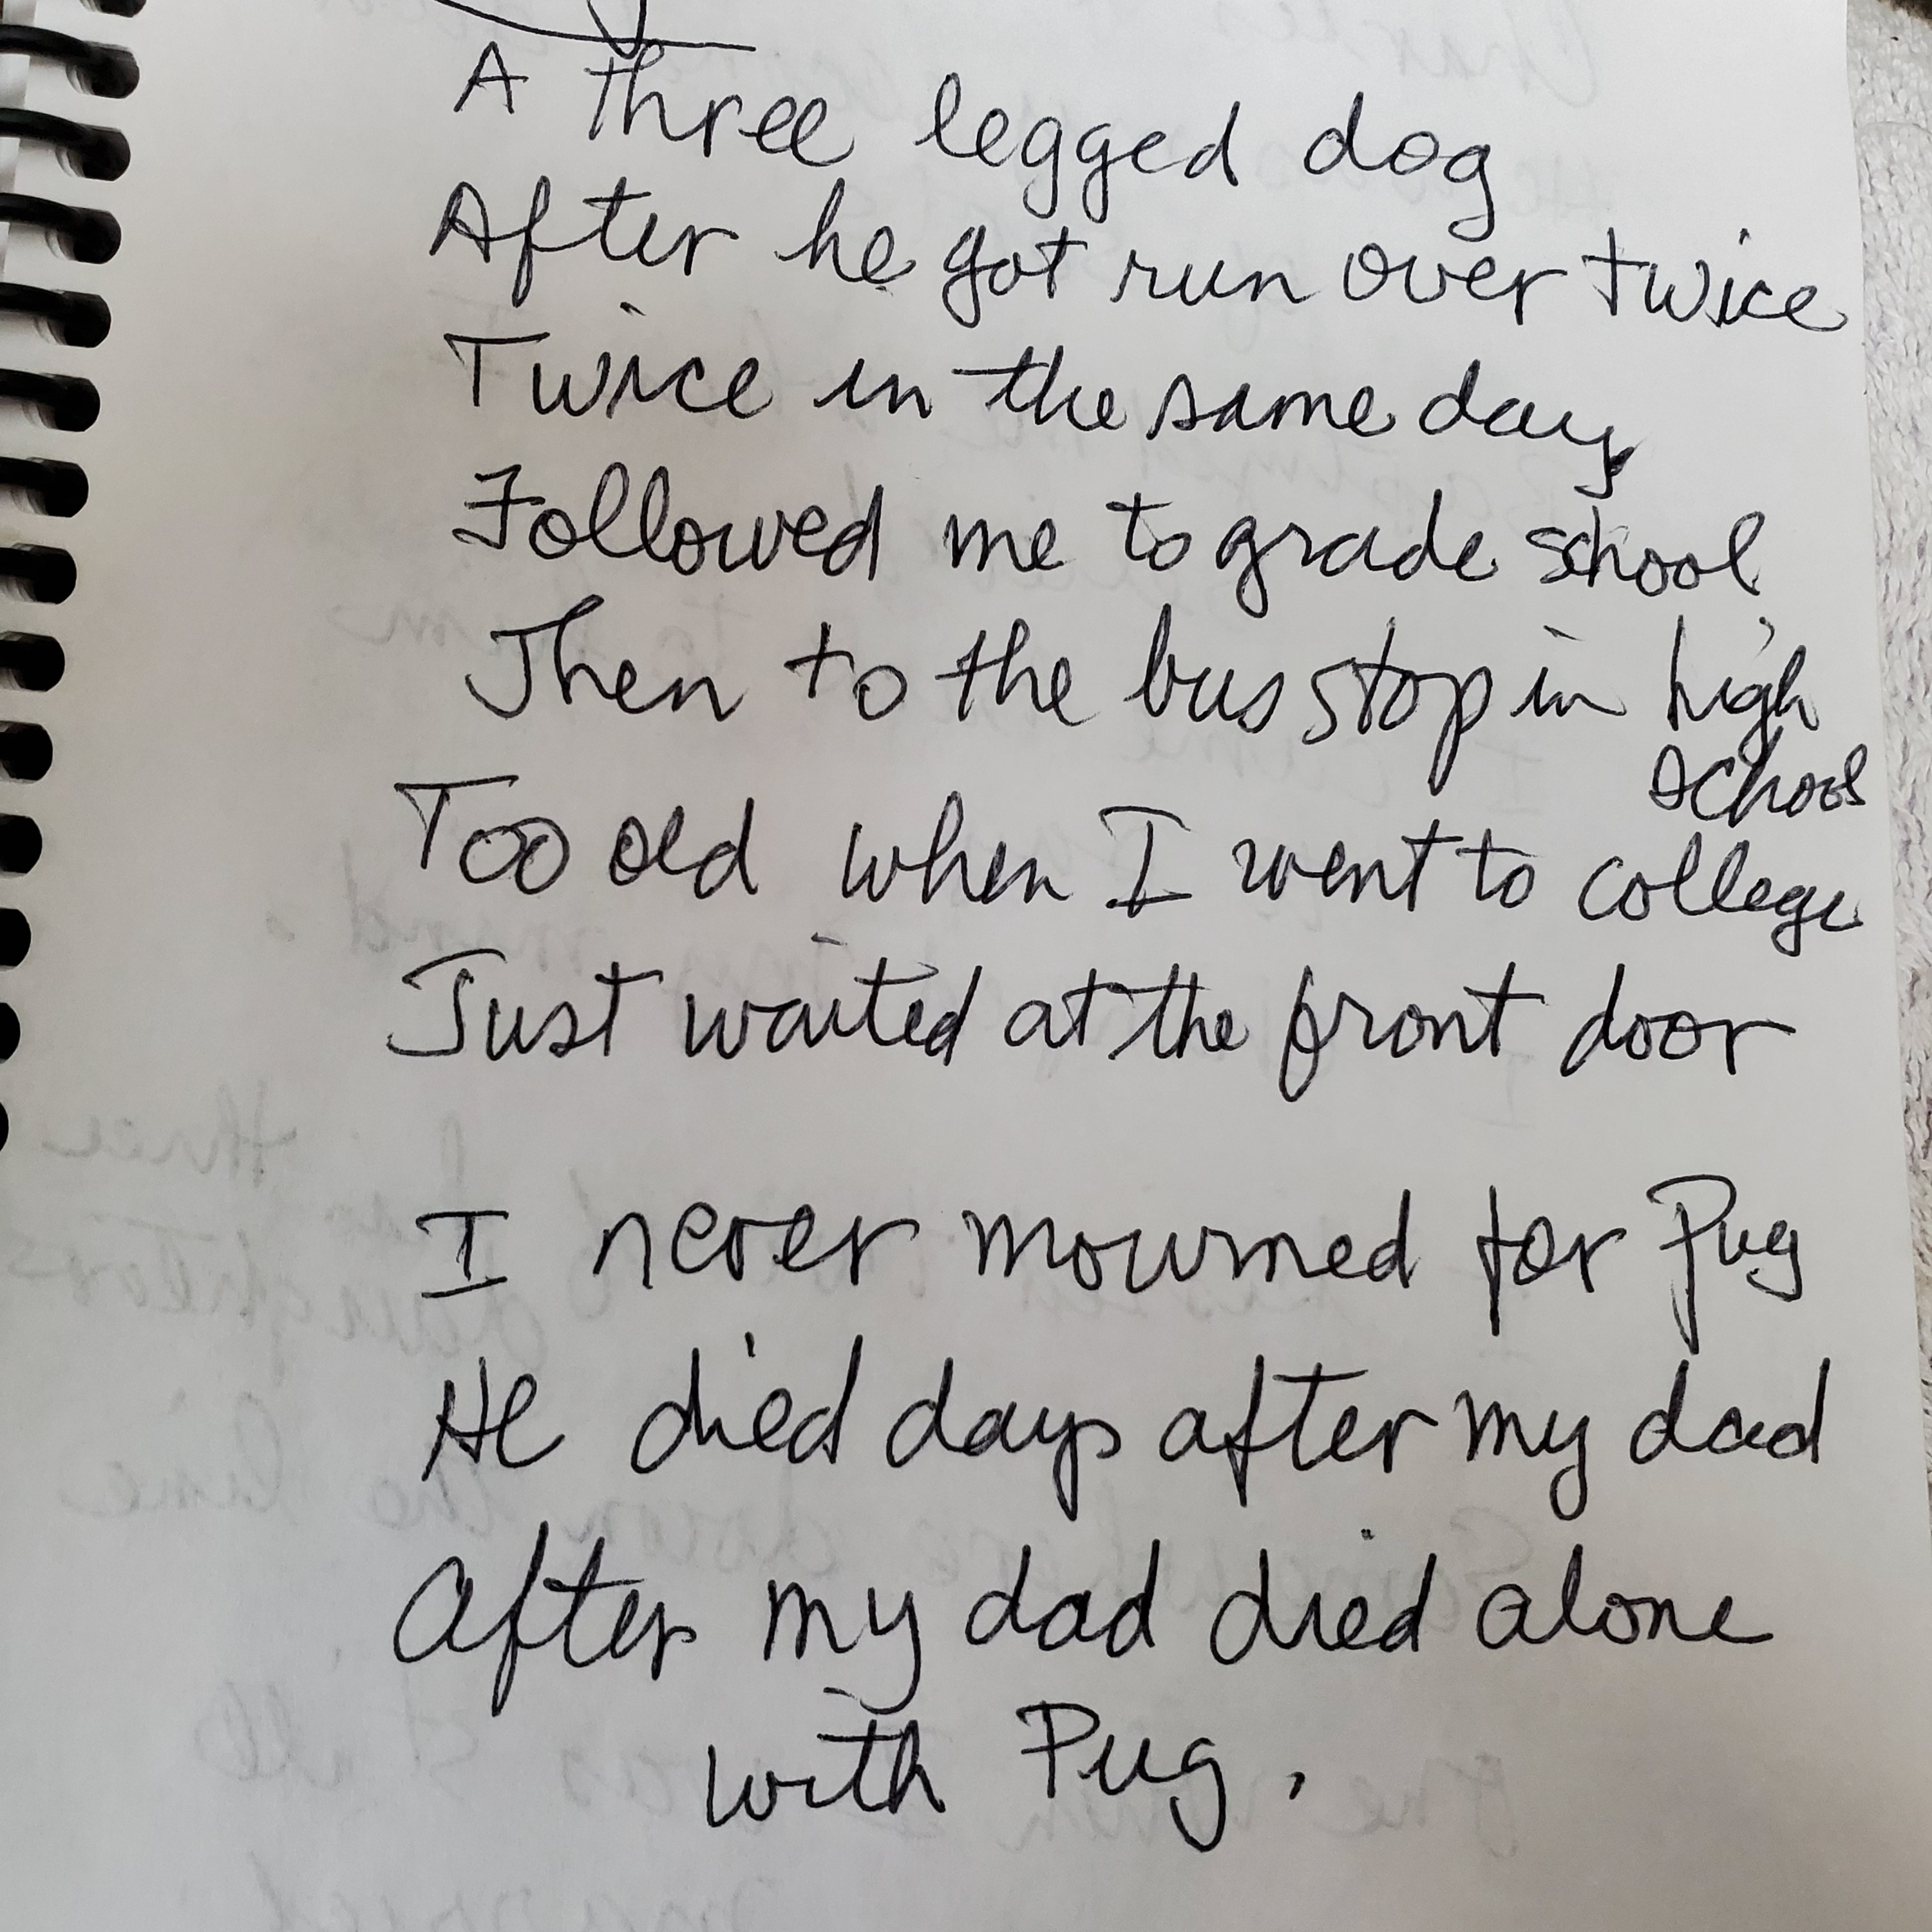 A three legged dog
After he got run over twice
Twice in the same day
Followed me to grade school
Then to the bus stop in high
school
Too old when I went to college
Just waited at the front door
I never mourned for Pug
He died days after my dad
After my dad died alone
with Pug.